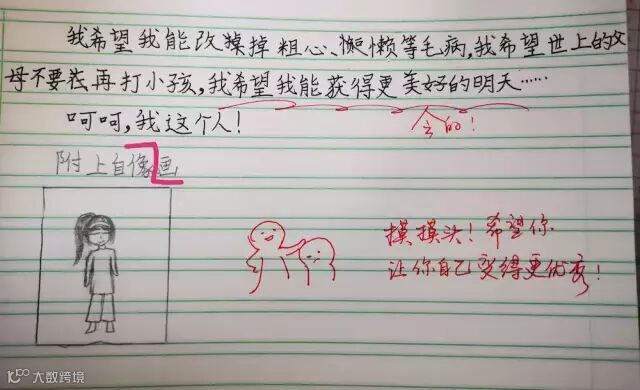 我希望我能改掉粗心、懒惰等毛病,我希望世上的父
母不要在再打小孩,我希望我能获得更美好的明天……
会的!
呵呵,我这个人!
附上自像画
摸摸头!希望你
让你自己变得更优秀!
大数跨境